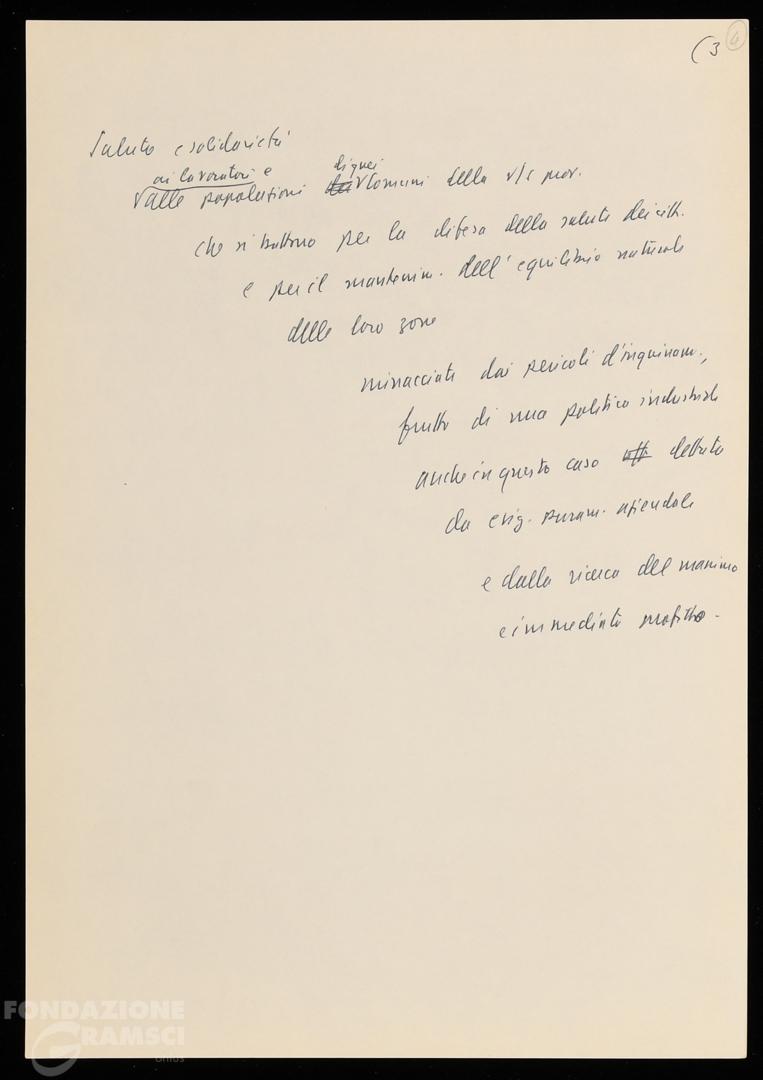 (3 4
Saluto e solidarietà
ai lavoratori e di quei
alle popolazioni dei comuni della v/s prov.
che si battono per la difesa della salute dei citt.
e per il mantenim. dell'equilibrio naturale
delle loro zone
minacciate dai pericoli d'inquinam.,
frutto di una politica industriale
anche in questo caso dettata
da esig. puram. aziendali
e dalla ricerca del massimo
e immediato profitto.
FONDAZIONE
GRAMSCI
onlus